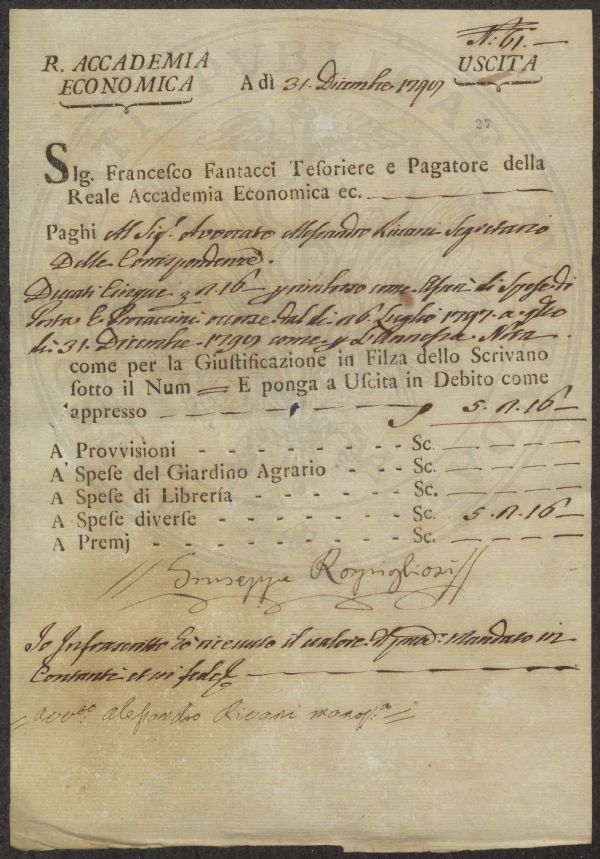 N.: 61. —
R. ACCADEMIA
ECONOMICA
A dì 31. Dicembre 1797
USCITA
27
SIg. Francesco Fantacci Tesoriere e Pagatore della
Reale Accademia Economica ec.
Paghi Al Sig.r Avvocato Alessandro Rivani Segretario
Delle Corrispondenze.
Ducati Cinque 2. n. 16 rimborso come Spese di
Posta E occorse dal dì 16 Luglio 1797. a
dì 31. Dicembre 1797 come Annessa Nota.
come per la Giustificazione in Filza dello Scrivano
sotto il Num = E ponga a Uscita in Debito come
appresso — 5. n. 16 —
A Provvisioni - - - - - - - - Sc. — — — —
A Spese del Giardino Agrario - - - - Sc. — — — —
A Spese di Librería - - - - - - - Sc. — — — —
A Spese diverse - - - - - - - - Sc. 5. n. 16 —
A Premj - - - - - - - - - - Sc. — — — —
// Giuseppe Rospigliosi //
Io Infrascritto ho ricevuto il valore Mandato in
Contanti et in fede
= Avv.to Alessandro Rivani mano p.a =